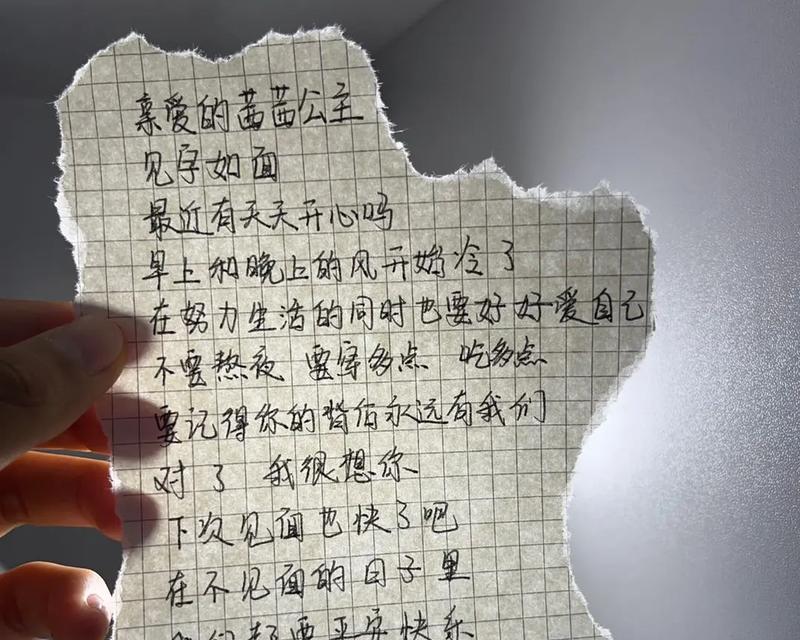 亲爱的茜茜公主
见字如面
最近有天天开心吗
早上和晚上的风开始冷了
在努力生活的同时也要好好爱自己
不要熬夜 要穿多点 吃多点
要记得你的背后永远有我们
对了 我很想你
下次见面也快了吧
在不见面的日子里
我们都要平安快乐